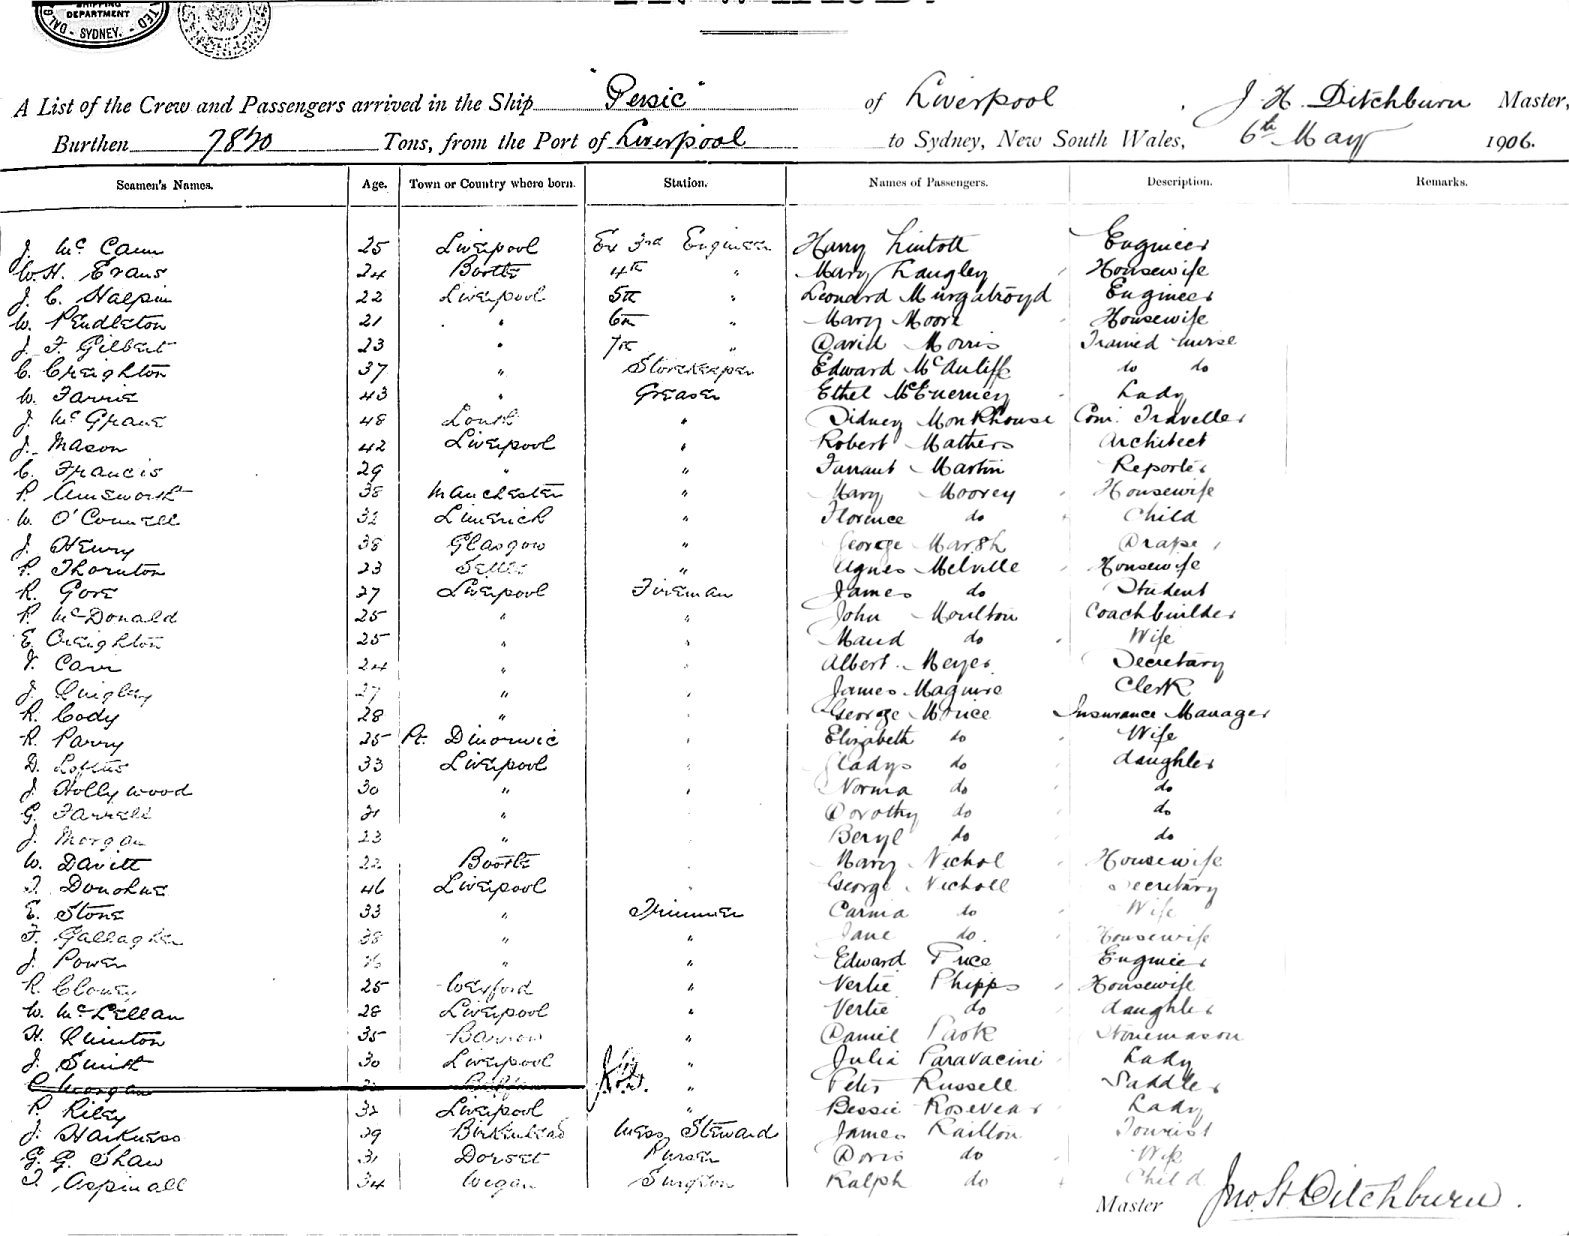 SHIPPING
DEPARTMENT
SYDNEY.
A List of the Crew and Passengers arrived in the Ship "Persic" of Liverpool, J H Ditchburn Master,
Burthen 7820 Tons, from the Port of Liverpool to Sydney, New South Wales, 6th May 1906.
Seamen's Names. Age. Town or Country where born. Station. Names of Passengers. Description. Remarks.
J. McCann 25 Liverpool Ex 3rd Engineer Harry Lintott Engineer
W.H. Evans 24 Bootle 4th " Mary Langley Housewife
J. C. Halpin 22 Liverpool 5th " Leonard Murgatroyd Engineer
W. Pendleton 21 " 6th " Mary Moore Housewife
J. F. Gilbert 23 " 7th " David Morris Trained nurse
C. Creighton 37 " Storekeeper Edward McAuliffe do do
W. Farrie 43 " Greaser Ethel McEnerney Lady
J. McGrane 48 Louth " Sidney Monkhouse Com. Traveller
J. Mason 42 Liverpool " Robert Mathers Architect
C. Francis 29 " " Tarrant Martin Reporter
P. Ainsworth 38 Manchester " Mary Moorey Housewife
W. O'Connell 32 Limerick " Florence do Child
J. Henry 38 Glasgow " George Marsh Draper
P. Thornton 23 " Agnes Melville Housewife
R. Gore 27 Liverpool Fireman James do Student
P. McDonald 25 " " John Moulton Coachbuilder
E. Creighton 25 " " Maud do Wife
T. Carr 24 " " Albert Meyer Secretary
J. Quigley 27 " " James Maguire Clerk
R. Cody 28 " " George Morice Insurance Manager
R. Parry 25 Pt. Dinorwic " Elizabeth do Wife
D. Loftus 33 Liverpool " Gladys do daughter
J. Hollywood 30 " " Norma do do
G. Farrell 21 " Dorothy do do
J. Morgan 23 " Beryl do do
W. Davitt 22 Bootle Mary Nichol Housewife
T. Donohue 46 Liverpool " George Nicholl Secretary
E. Stone 33 " Trimmer Carina do Wife
F. Gallagher 38 " " Jane do. Housewife
J. Power " " Edward Price Engineer
R. Cloney 25 Wexford " Vertie Phipps Housewife
W. McLellan 28 Liverpool " Vertie do daughter
H. Quinton 35 Barrow " Daniel Park Stonemason
J. Smith 30 Liverpool " Julia Paravacini Lady
C Morgan " Peter Russell Saddler
P. Riley 32 Liverpool " Bessie Rosevear Lady
J. Harkness 39 Birkenhead Mess Steward James Railton Tourist
G. G. Shaw 31 Dorset Purser Doris do Wife
T. Aspinall 34 Wigan Surgeon Ralph do Child
Master Jno. H Ditchburn.